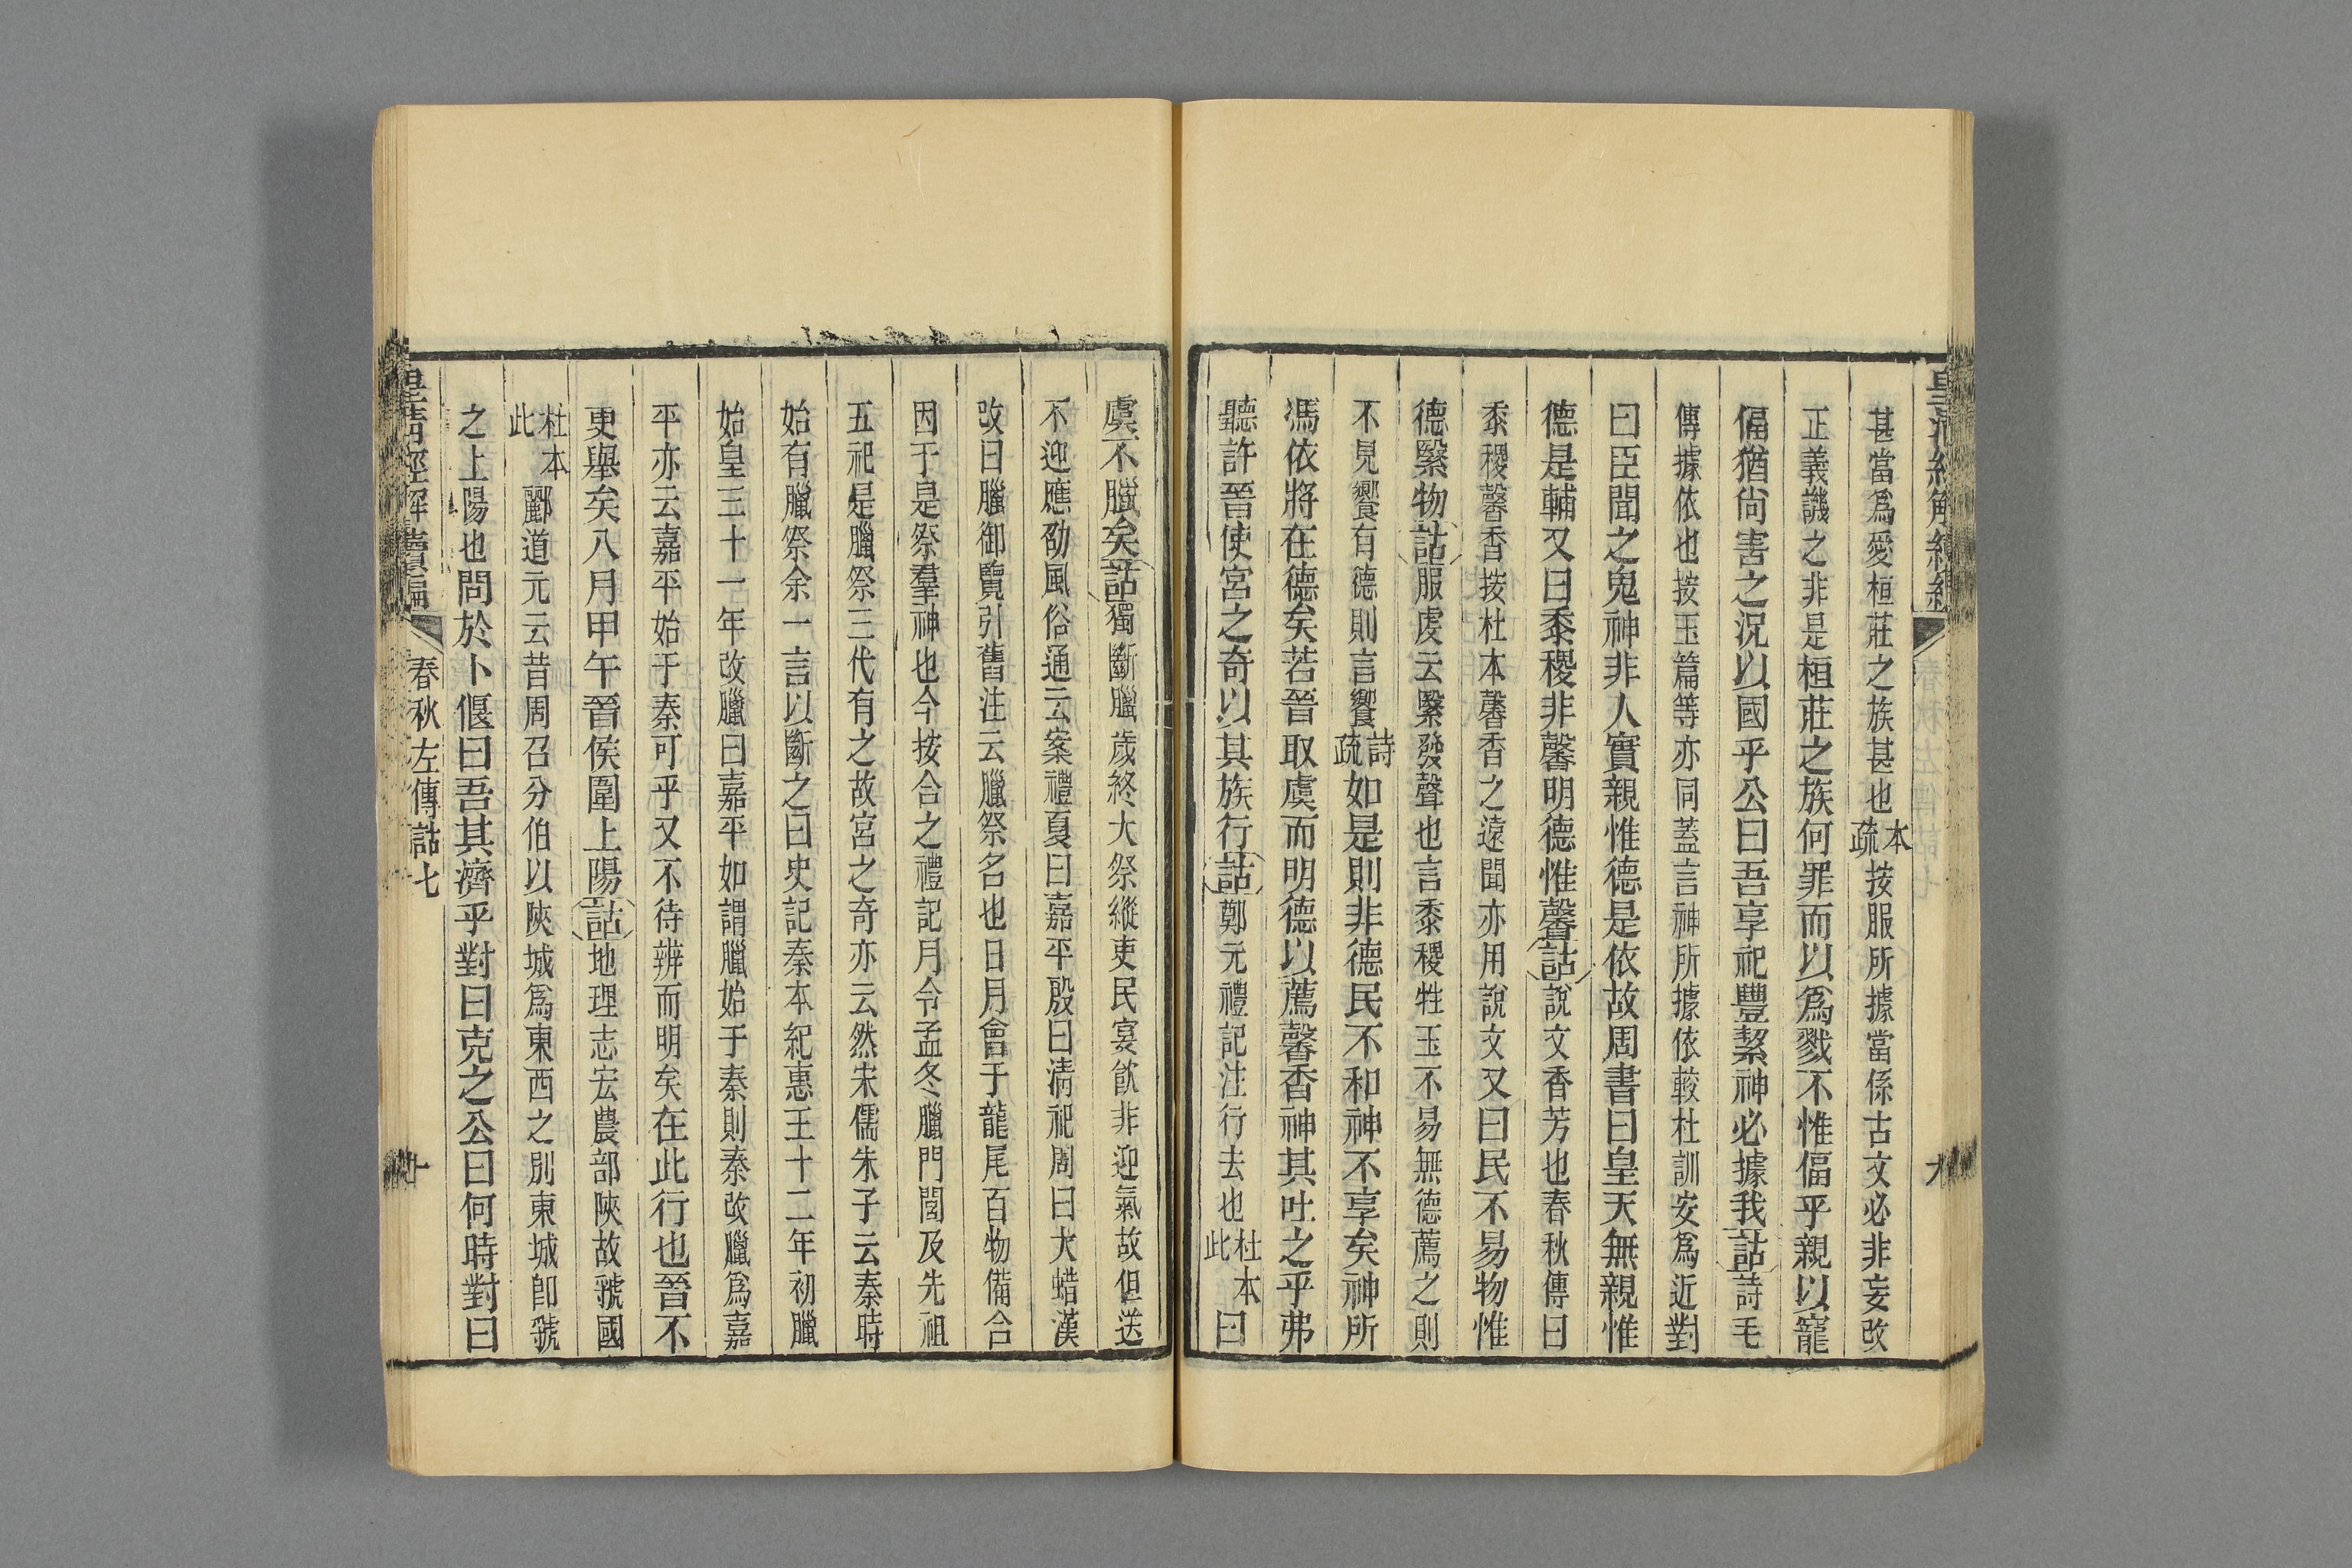 甚當爲愛桓莊之族甚也本疏按服所據當係古文必非妄改
正義譏之非是桓莊之族何罪而以爲戮不惟偪乎親以寵
偪猶尙害之況以國乎公曰吾享祀豐絜神必據我詁詩毛
傳據依也按玉篇等亦同蓋言神所據依較杜訓安爲近對
曰臣聞之鬼神非人實親惟德是依故周書曰皇天無親惟
德是輔又曰黍稷非馨明德惟馨詁說文香芳也春秋傳曰
黍稷馨香按杜本馨香之遠聞亦用說文又曰民不易物惟
德繄物詁服虔云繄發聲也言黍稷牲玉不易無德薦之則
不見饗有德則言饗詩疏如是則非德民不和神不享矣神所
馮依將在德矣若晉取虞而明德以薦馨香神其吐之乎弗
聽許晉使宮之奇以其族行詁鄭元禮記注行去也杜本此曰
虞不臘矣詁獨斷臘歲終大祭縱吏民宴飮非迎氣故但送
不迎應劭風俗通云案禮夏曰嘉平殷曰淸祀周曰大蜡漢
改曰臘御覽引舊注云臘祭名也日月會于龍尾百物備合
因于是祭羣神也今按合之禮記月令孟冬臘門閭及先祖
五祀是臘祭三代有之故宮之奇亦云然宋儒朱子云秦時
始有臘祭余一言以斷之曰史記秦本紀惠王十二年初臘
始皇三十一年改臘曰嘉平如謂臘始于秦則秦改臘爲嘉
平亦云嘉平始于秦可乎又不待辨而明矣在此行也晉不
更舉矣八月甲午晉侯圍上陽詁地理志宏農部陝故虢國
杜本此酈道元云昔周召分伯以陝城爲東西之別東城卽虢
之上陽也問於卜偃曰吾其濟乎對曰克之公曰何時對曰
皇淸經解續編 春秋左傳詁七 十